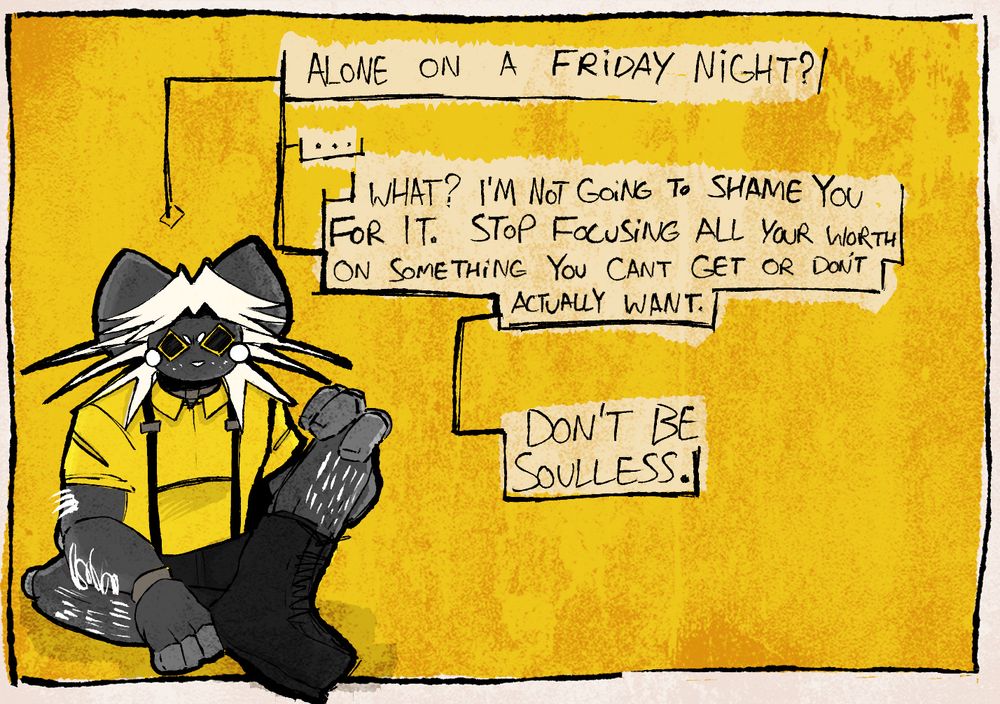 ALONE ON A FRiDAY NiGHT?
...
WHAT? I'M NOT GOiNG To SHAME YOU
FOR IT. STOP FOCUSiNG ALL YOUR WORTH
ON SOMETHiNG YOU CANT GET OR DON'T
ACTUALLY WANT.
DON'T BE
SOULLESS.